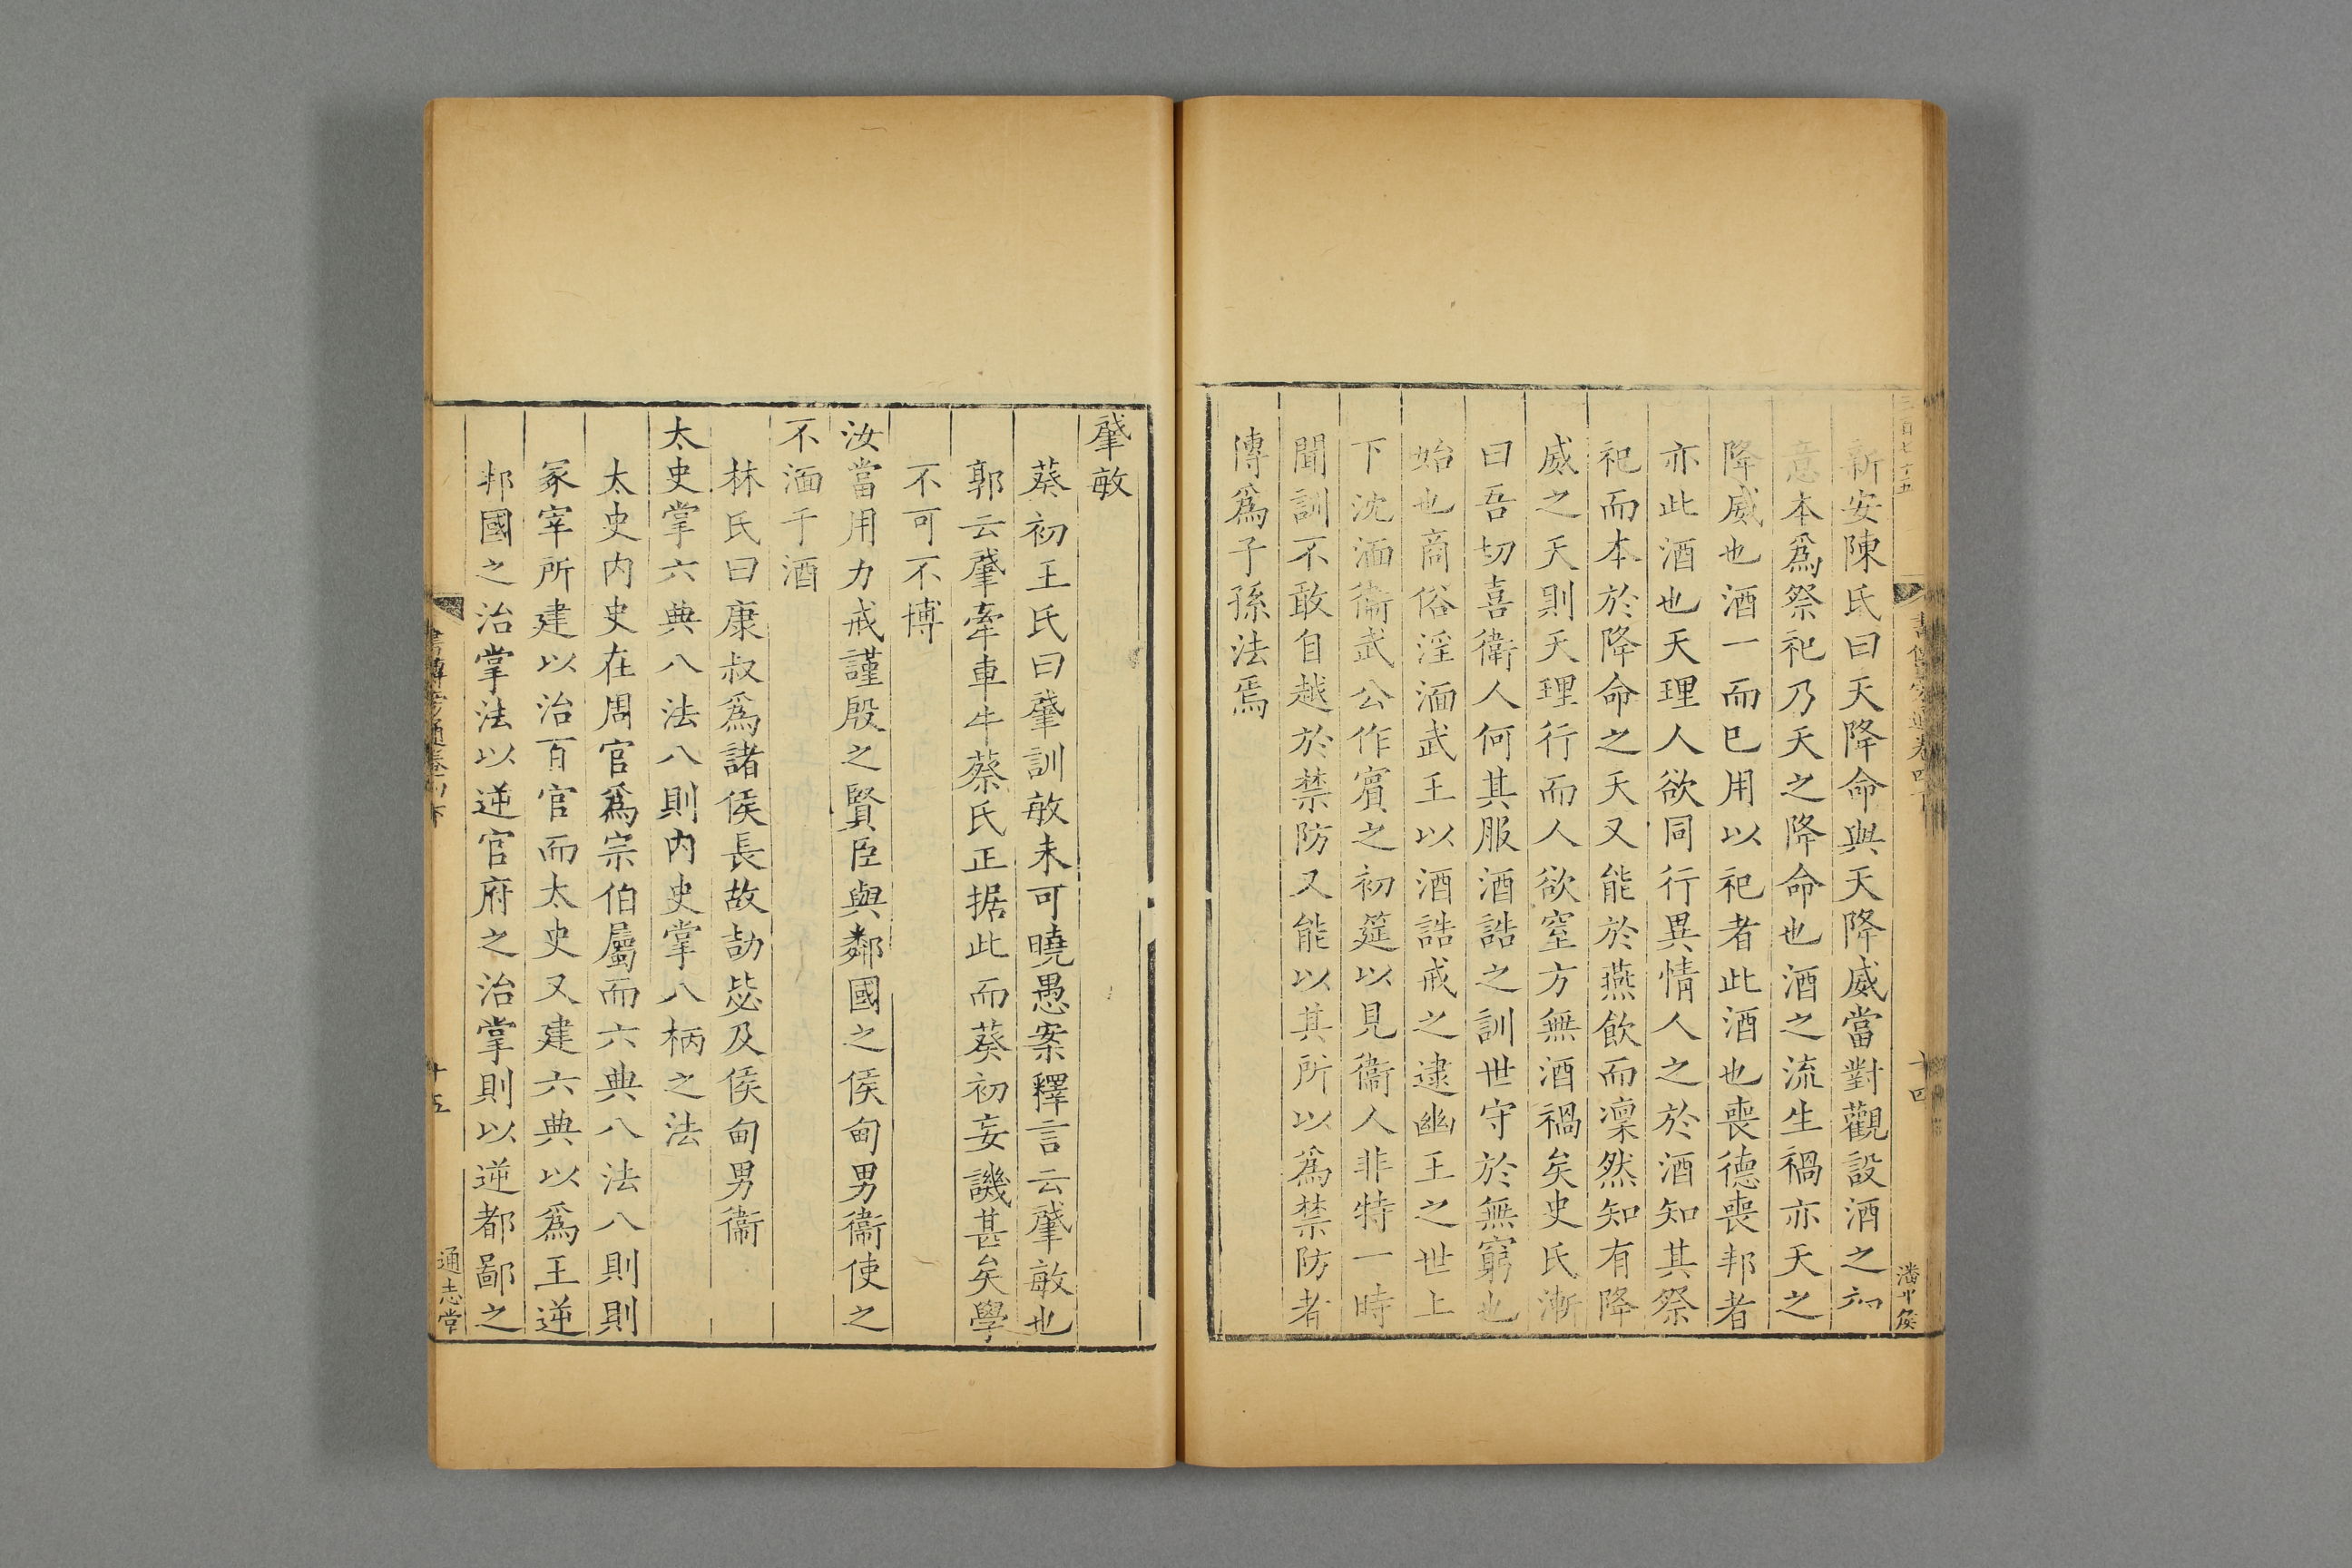 新安陳氏曰天降命與天降威當對觀設酒之初
意本爲祭祀乃天之降命也酒之流生禍亦天之
降威也酒一而已用以祀者此酒也喪德喪邦者
亦此酒也天理人欲同行異情人之於酒知其祭
祀而本於降命之天又能於燕飲而凜然知有降
威之天則天理行而人欲窒方無酒禍矣史氏漸
曰吾切喜衞人何其服酒誥之訓世守於無窮也
始也商俗淫湎武王以酒誥戒之逮幽王之世上
下沈湎衞武公作賔之初筵以見衞人非特一時
聞訓不敢自越於禁防又能以其所以爲禁防者
傳爲子孫法焉
三百七十五
書傳旁通卷四下
十四
肇敏
葵初王氏曰肇訓敏未可曉愚案釋言云肇敏也
郭云肇牽車牛蔡氏正据此而葵初妄譏甚矣學
不可不博
汝當用力戒謹殷之賢臣與鄰國之侯甸男衞使之
不湎于酒
林氏曰康叔爲諸侯長故劼毖及侯甸男衞
太史掌六典八法八則內史掌八柄之法
太史內史在周官爲宗伯屬而六典八法八則則
冢宰所建以治百官而太史又建六典以爲王逆
邦國之治掌法以逆官府之治掌則以逆都鄙之
書傳旁通卷四下
十五
通志堂